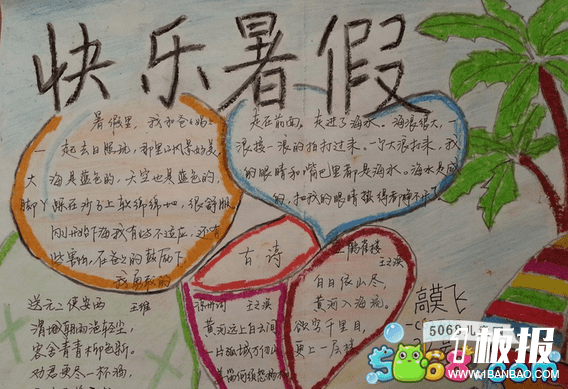 快乐暑假
暑假里，我和爸妈
一起去日照玩，那里的风景好美
大海是蓝色的，天空也是蓝色的，
脚丫踩在沙子上软绵绵地，很舒服
刚开始下海我有些不适应，还有
些害怕，在爸爸的鼓励下
我勇敢的
走在前面，走进了海水。海浪很大，一
浪接一浪的拍打过来，一个大浪打来，我
的眼睛和嘴巴里都是海水。海水是咸
的，把我的眼睛蛰得都睁不开
古诗
送元二使安西
王维
渭城朝雨浥轻尘，
客舍青青柳色新。
劝君更尽一杯酒，
王之涣
黄河远上白云间
一片孤城万仞山
登鹳雀楼
王之涣
白日依山尽，
黄河入海流。
欲穷千里目，
更上一层楼
高莫飞
5068儿
板报
WWW.1BANBAO.COM